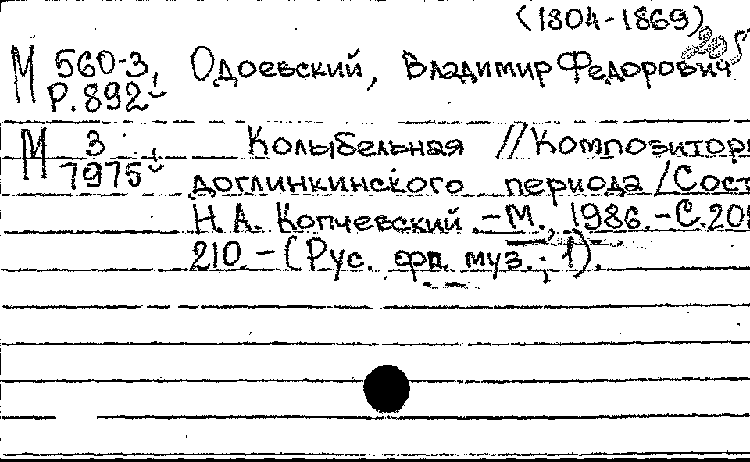 (1804-1869)
М 560-3, Одоевский, Владимир Федорович
Р.892
М 3 Колыбельная // Композиторы
7975 доглинкинского периода / Сост.
Н.А. Копчевский. - М., 1986. - С.20
210. - (Рус. фп. муз.; 1).